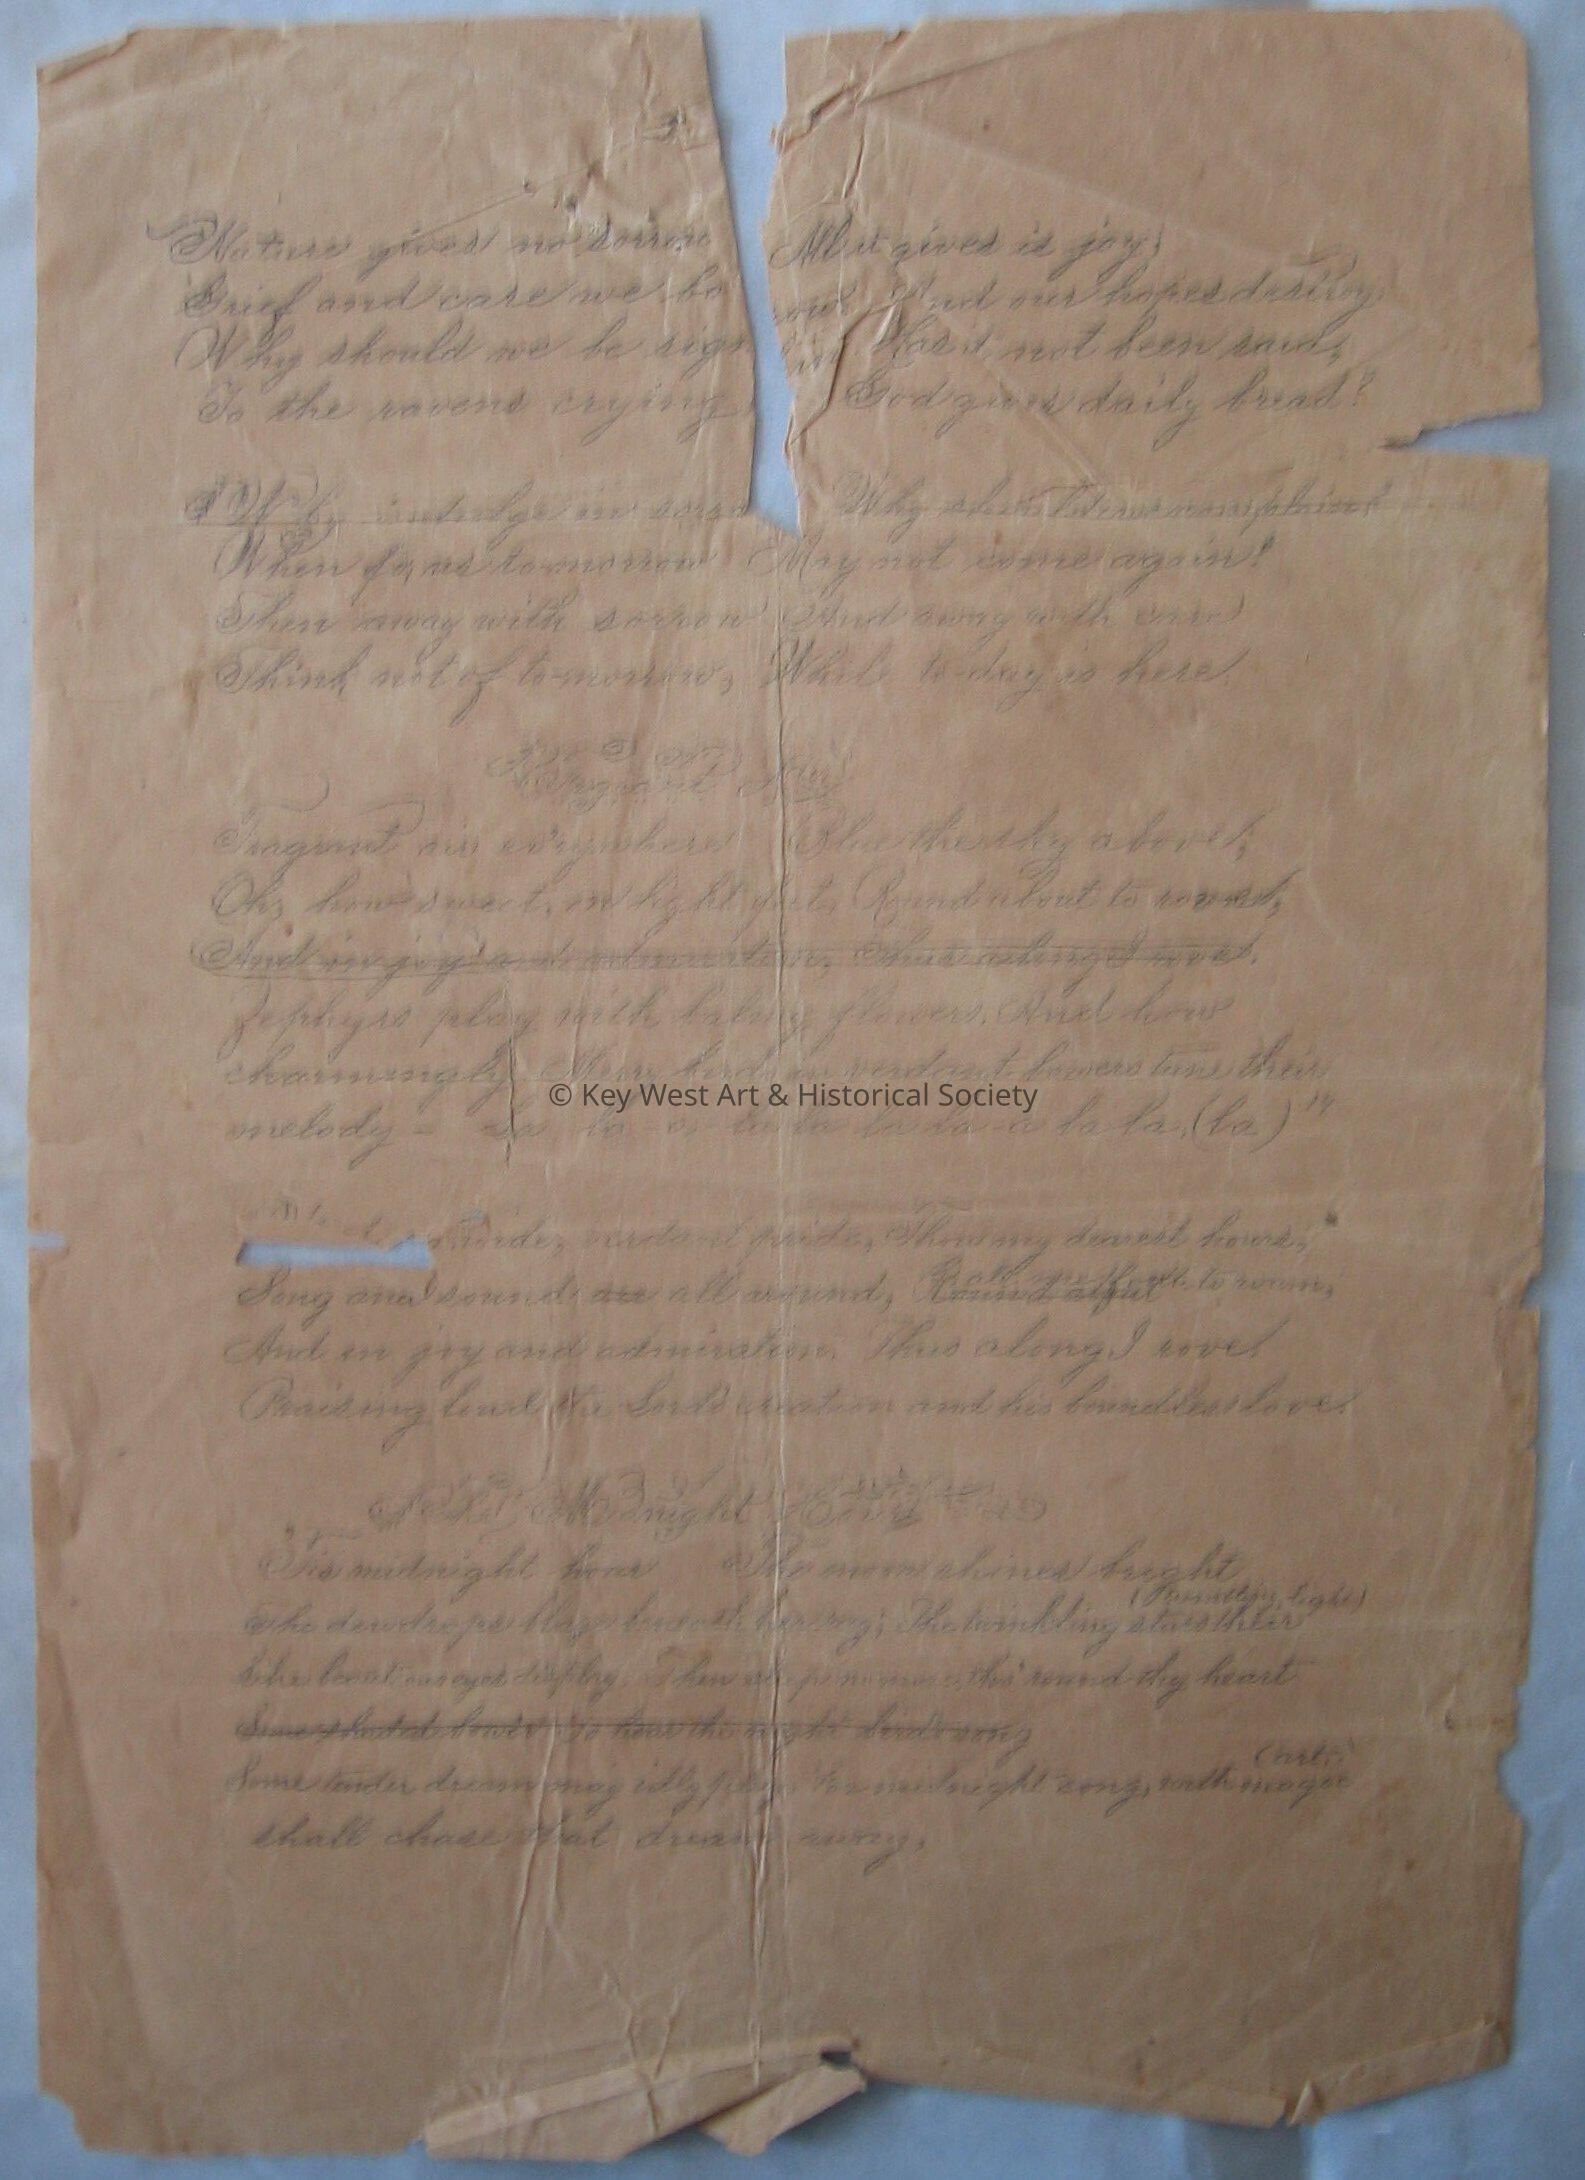 Nature gives no sorrow All it gives is joy;
Grief and care we bo row And our hopes destroy.
Why should we be sigh in Has it not been said,
To the ravens crying God gives daily bread?
Why indulge in sorro Why should we complain?
When for us to-morrow May not come again!
Then away with sorrow And away with care
Think not of to-morrow, While to-day is here.
Fragrant Air
Fragrant air ev'rywhere Blue the sky above;
Oh, how sweet, on light feet, Round about to
And in joy and admiration, Thus along I rove.
Zephyrs play with balmy flowers, And how
charmingly Merry birds in verdant bowers tune their
© Key West Art & Historical Society
melody - La la - a - la la la la la - a la la. (la)
wide, verdant pride, Thou my dearest hours,
Song and sound are all around, Round about to roam,
And in joy and admiration. Thus along I rove!
Praising loud the Lord's creation and his boundless love.
The Midnight Hour
'Tis midnight hour The moon shines bright
(Trembling light)
The dewdrops blaze beneath her ray; The twinkling stars their
Like beauteous eyes display. Then sleep no more, tho' round thy heart
Some shaded bower to hear the night bird's song
(art:)
Some tender dream may idly play. For midnight song, with magic
shall chase that dream away.